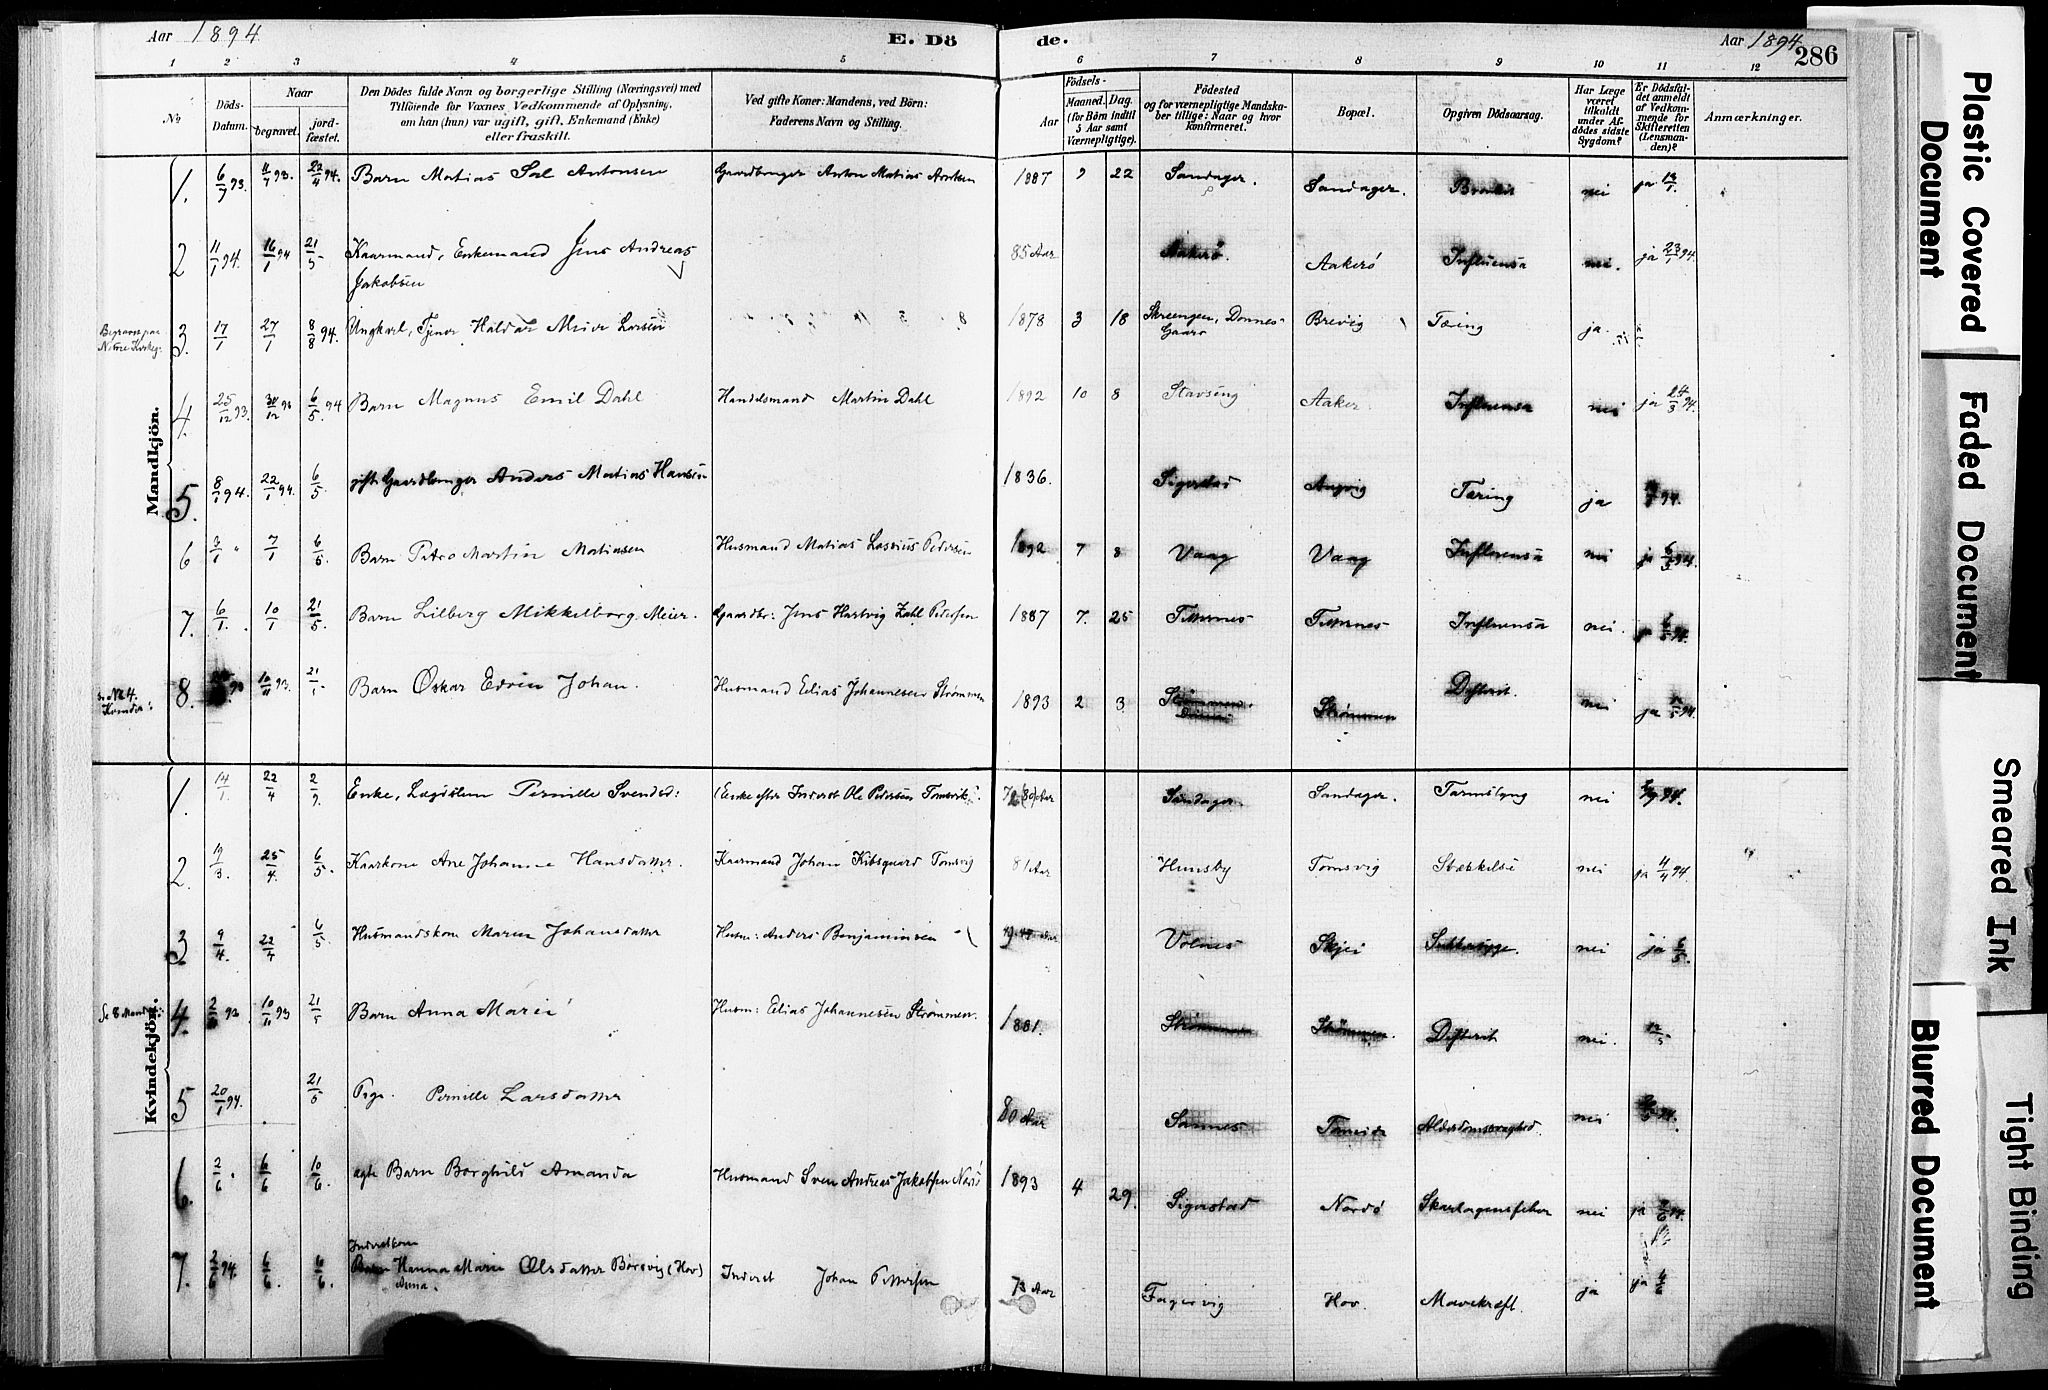 Aar 1894
E. Dö
de.
Aar 1894
286
1 2 3 4 5 6 7 8 9 10 11 12
No
Döds-Datum.
Naar
begravet.
jord-fæstet.
Den Dödes fulde Navn og borgerlige Stilling (Næringsvei) med
Tilföiende for Voxnes Vedkommende af Oplysning,
om han (hun) var ugift, gift, Enkemand (Enke)
eller fraskilt.
Ved gifte Koner: Mandens, ved Börn:
Faderens Navn og Stilling.
Födsels-
Aar
Maaned. Dag.
(for Börn indtil
5 Aar samt
Værnepligtige).
Födested
og for værnepligtige Mandska-
ber tillige: Naar og hvor
konfirmeret.
Bopæl.
Opgiven Dödsaarsag.
Har Læge
været
tilkaldt
under Af-
dödes sidste
Sygdom?
Er Dödsfal-
det anmeldt
af Vedkom-
mende for
Skifteretten
(Lensman-
den)?
Anmærkninger.
Mandkjön.
1. 6/7 93. 11/7 93. 22/4 94. Barn Matias Sal Antonsen Gaardbruger Anton Matias 1887 9 22 Sandager. Sandager. nei ja
2 11/1 94. 16/1 94 21/5 Kaarmand, Enkemand Jens Andreas
Jakobsen 85 Aar Aakerö. Aakerö Influensa nei. ja 23/1 94.
3. 17/1 27/1 8/8 94. Ungkarl, Tjener Haldor Meier Larsen 1878 3 18 Dönnes-
Gaard Brevig Tæring ja
4. 25/12 93. 6/5 94 Barn Magnus Emil Dahl Handelsmand Martin Dahl 1892 10 8 Stavseng Aaker Influensa nei ja 24/3 94.
5. 8/1 94. 22/1 94. 6/5 gift Gaardbruger Anders Matias Hansen 1836. Sigerstad Angvig Tæring ja 94.
6 3/1 " 7/1 6/5 Barn Petro Martin Matiasen Husmand Matias Lassius Pedersen 1892 7 8 Vaag Vaag Influensa nei ja 6/5 94.
7. 6/1. 10/1 21/5. Barn Lilberg Mikkelborg Meier. Gaardbr: Jens Hartvig Zahl Petersen 1887 7. 25 Titternes Titternes Influensa nei. ja 6/5 94.
s. No 4.
Kvinder:
8. 10/11 93. 21/5 Barn Oskar Edvin Johan. Husmand Edias Johannesen Strømmen 1893 2 3 Strømmen.
Dönnes Strømmen Difterit. nei ja 94.
Kvindekjön.
1. 14/1. 22/4 2/9. Enke, Lægdslem Pernille Svendsd: (Enke efter Inderst Ole Pedersen Tomsvik). Aar Sandager Sandager. Tarmslyng nei 94.
2. 19/3. 25/4. 6/5. Kaarkone Ane Johanna Hansdatter. Kaarmand Johan Kibsgaard Tomsvig 81 Aar Hunsby Tomsvig Stækkelse nei ja 4/4 94.
3 9/4. 22/4 6/5 Husmandskone Maren Johansdatter Husm: Anders Benjaminsen Volnes Skjei Suttesyge. nei ja 6/5.
Se 8 Mandkj:
4. 93 10/11 93 21/5 Barn Anna Marie Husm: Edias Johannesen Strømmen. 1881. Strømmen Strømmen. Difterit nei. 12/5
5 20/1 94. 21/5 Pige. Pernille Larsdatter 80 Aar Sannes Alderdomssvaghed nei 94.
6. 2/6 " 6/6 10/6. ægte Barn Borghild Amanda Husmand Sven Andreas Jakobsen Nordö 1893 4 29. Sigerstad Nordö Skarlagensfeber nei ja
7. 2/6 94. 6/6. Inderstkone
Hanna Marie Olsdatter Børsvig (Hov)
Anna. Inderst Johan Pettersen 73 Aar Fagervig Hov. Mavekræft. ja ja 4/6
Plastic Covered Document
Faded Document
Smeared Ink
Blurred Document
Tight Binding